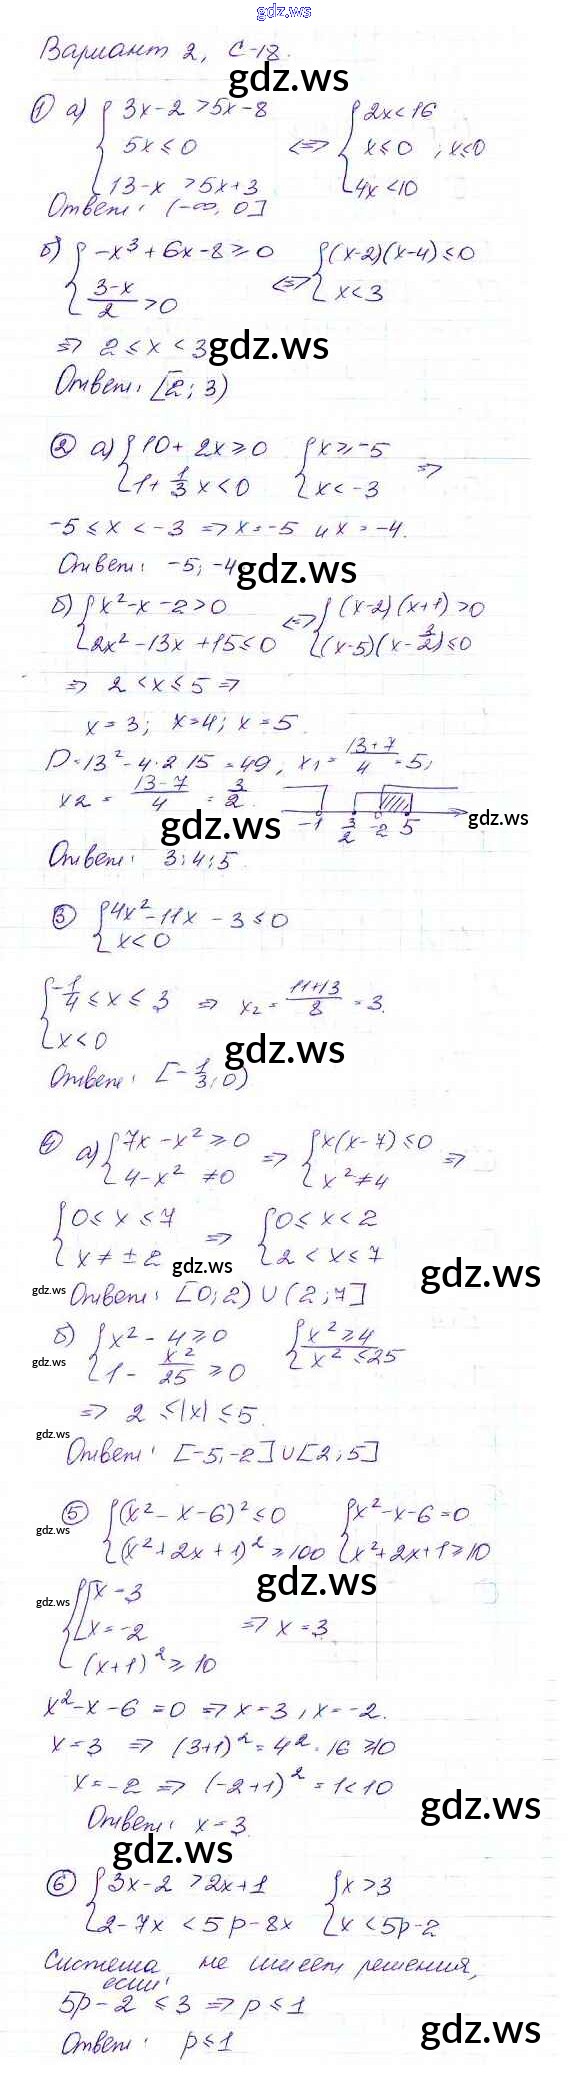 gdz.ws
Вариант 2, С-18.
gdz.ws
① а) { 3x-2 >5x-8 { 2x<16
5x ≤ 0 <=> x≤0 , x≤0
13-x >5x+3 4x<10
Ответ: (-∞, 0]
б) { -x³+6x-8≥0 { (x-2)(x-4)≤0
(3-x)/2 >0 <=> x<3
=> 2≤x<3 gdz.ws
Ответ: [2; 3)
② а) { 10+2x≥0 { x≥-5 =>
1+1/3 x<0 x<-3
-5≤x<-3 => x=-5 и x=-4.
Ответ: -5; -4 gdz.ws
б) { x²-x-2>0 <=> { (x-2)(x+1)>0
2x²-13x+15≤0 (x-5)(x-3/2)≤0
=> 2<x≤5 =>
x=3; x=4; x=5.
D=13²-4·2 15=49, x₁=(13+7)/4=5;
x2 = (13-7)/4 = 3/2.
-1 3/2 -2 5 gdz.ws
gdz.ws
Ответ: 3; 4; 5.
③ { 4x²-11x-3≤0
x<0
{ -1/4≤x≤3 => x₂=(11+13)/8=3.
x<0 gdz.ws
Ответ: [-1/3; 0)
④ а) { 7x-x²≥0 => { x(x-7)≤0 =>
4-x² ≠0 x²≠4
{ 0≤x≤7 => { 0≤x<2
x≠±2 2<x≤7
gdz.ws gdz.ws
gdz.ws Ответ: [0;2)∪(2;7]
б) { x²-4≥0 { x²≥4
gdz.ws 1-x²/25≥0 x²≤25
=> 2≤|x|≤5.
gdz.ws
Ответ: [-5,-2]∪[2;5]
⑤ { (x²-x-6)²≤0 { x²-x-6=0
gdz.ws (x²+2x+1)²≥100 x²+2x+1≥10
gdz.ws
gdz.ws { [ x-3
x=-2 => x=3
(x+1)²≥10
x²-x-6=0 => x=3, x=-2.
x=3 => (3+1)²=4²=16≥10
x=-2 => (-2+1)²=1<10
gdz.ws
Ответ: x=3.
gdz.ws
⑥ { 3x-2 >2x+1 { x>3
2-7x<5p-8x x<5p-2
Система не имеет решения,
если:
5p-2≤3 => p≤1
Ответ: p≤1
gdz.ws